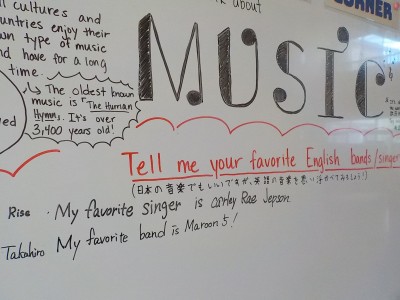 about
CORNER
cultures and
untries enjoy their
wn type of music
nd have for a long
time.
MUSIC
↳ The oldest known
music is "The Hurrian
Hymn. It's over
3,400 years old!
Tell me your favorite English bands/singer
(日本の音楽でもいいですが、英語の音楽を思い浮かべてみましょう!)
Rise . My favorite singer is carley Rae Jepson.
Takahiro My favorite band is Maroon 5!